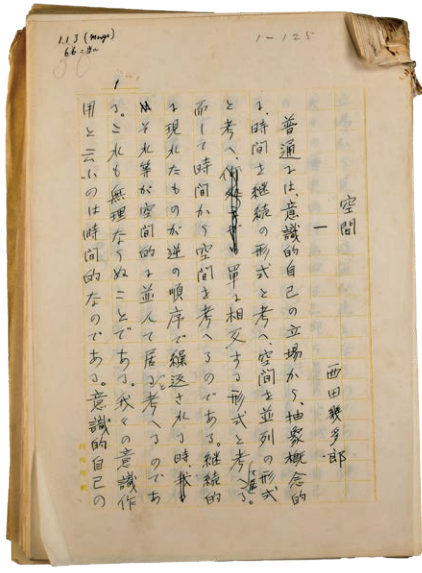 1—125
1
空間
一
西田幾多郎
普通には、意識的自己の立場から、抽象概念的
に、時間を継続の形式と考へ、空間を並列の形式
と考へ、単に相交する形式と考へて居る。
而して時間から空間を考へるのである。継続的
に現れたものが逆の順序で繰返される時、
それ等が空間的に並んで居ると考へるのであ
る。これも無理ならぬことである。我々の意識作
用と云ふのは時間的なのである。意識的自己の